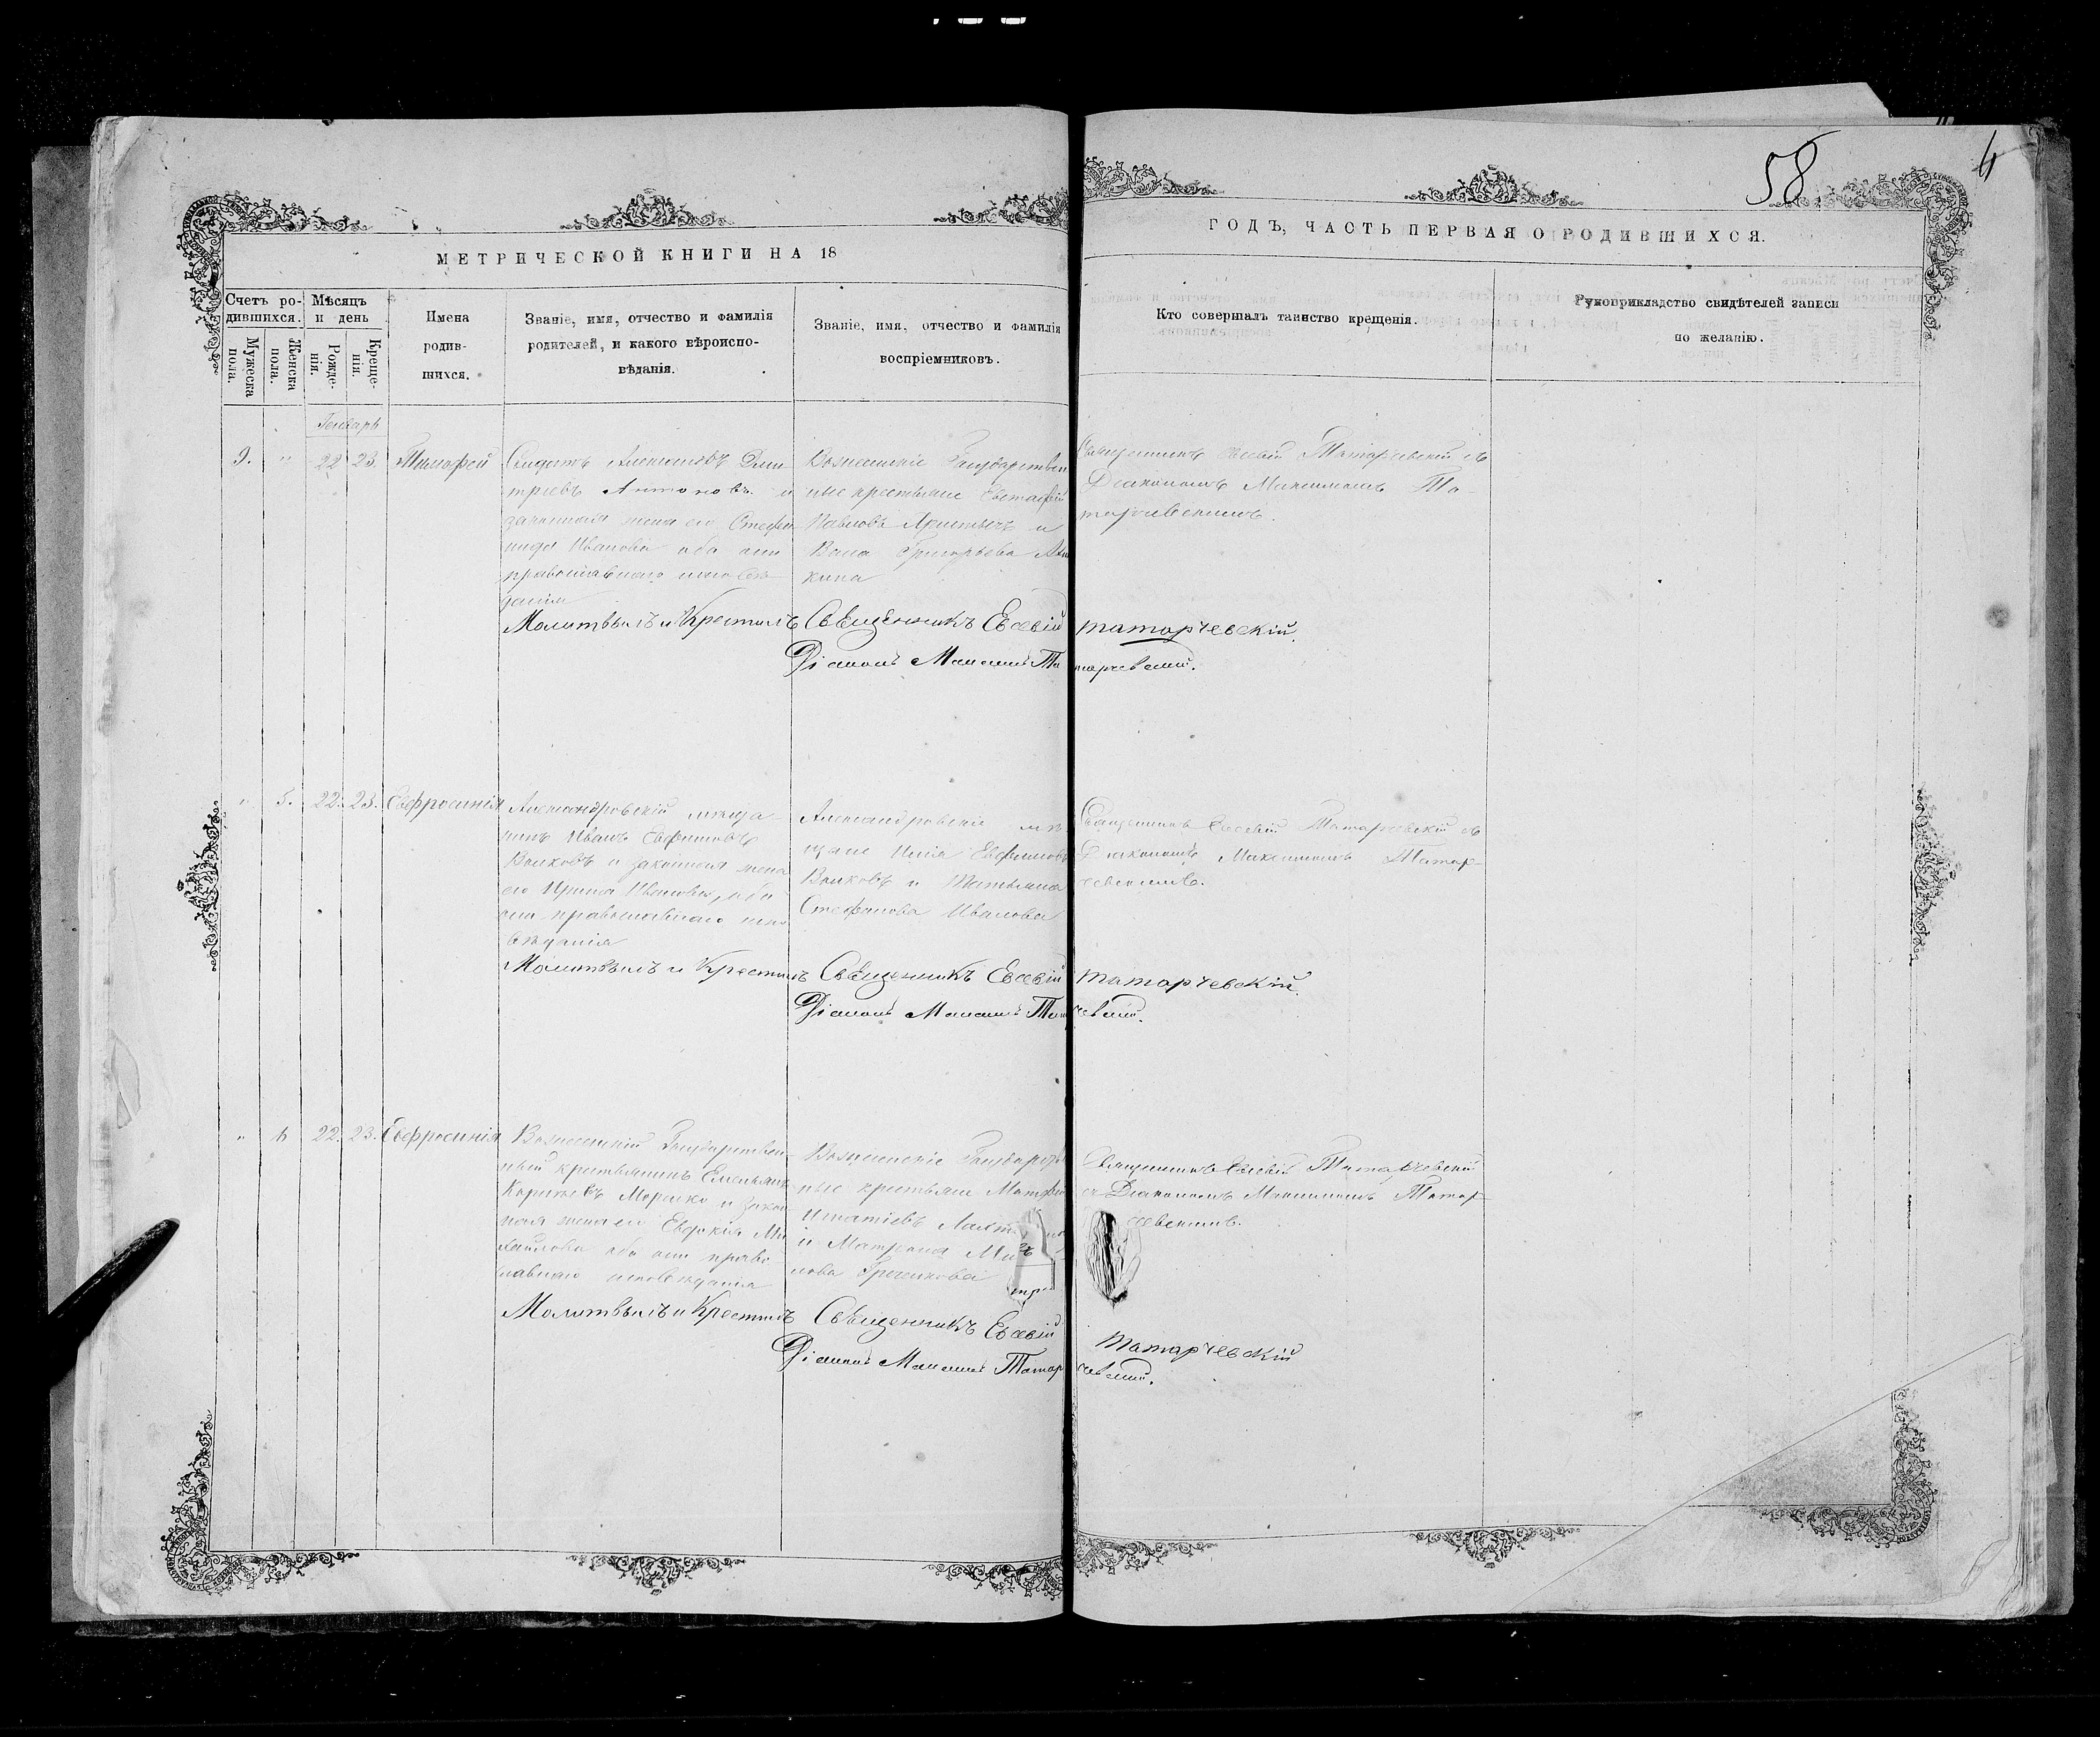 58
4
МЕТРИЧЕСКОЙ КНИГИ НА 18
ГОДЪ, ЧАСТЬ ПЕРВАЯ О РОДИВШИХСЯ.
Счетъ ро-
дившихся.
Мужеска
пола.
Женска
пола.
Мѣсяцъ
и день
Рожде-
нія.
Креще-
нія.
Имена
родив-
шихся.
Званіе, имя, отчество и фамилія
родителей, и какого вѣроиспо-
вѣданія.
Званіе, имя, отчество и фамилія
воспріемниковъ.
Кто совершалъ таинство крещенія.
Рукоприкладство свидѣтелей записи
по желанію.
Генварь
9. " 22 23. Тимофей
Дми-
тріевъ Антоновъ и
законная жена его Стефа
нида Иванова оба они
православнаго исповѣ-
данія
Вознесенскіе Государствен
ные крестьяне Евстафій
Павловъ и
Григорьева
кина
Священникъ Евсевій Татарчевскій съ
Діакономъ Максимомъ Та-
тарчевскимъ.
Молитвилъ и Крестилъ Священникъ Евсевій Татарчевскій.
Діаконъ Максимъ Татарчевскій.
" 5. 22. 23. Евфросинія
Александровскій мѣща-
нинъ Иванъ Евфимовъ
Волковъ и законная жена
его Ирина Иванова, оба
они православнаго испо
вѣданія
Александровскіе мѣ-
щане Илія Евфимовъ
Волковъ и Татьяна
Стефанова Иванова
Священникъ Евсевій Татарчевскій съ
Діакономъ Максимомъ Татар-
чевскимъ.
Молитвилъ и Крестилъ Священникъ Евсевій Татарчевскій.
Діаконъ Максимъ Татарчевскій.
" 6 22. 23. Евфросинія
Вознесенскій Государствен-
ный крестьянинъ Емельянъ
Моренко и закон
ная жена его Евдокія Ми
хайлова оба они право
славнаго исповѣданія
Вознесенскіе Государств
ные крестьяне Матфей
Игнатіевъ
и Матрона
нова
Священникъ Евсевій Татарчевскій
съ Діакономъ Максимомъ Татар-
чевскимъ.
Молитвилъ и Крестилъ Священникъ Евсевій Татарчевскій
Діаконъ Максимъ Татарчевскій.